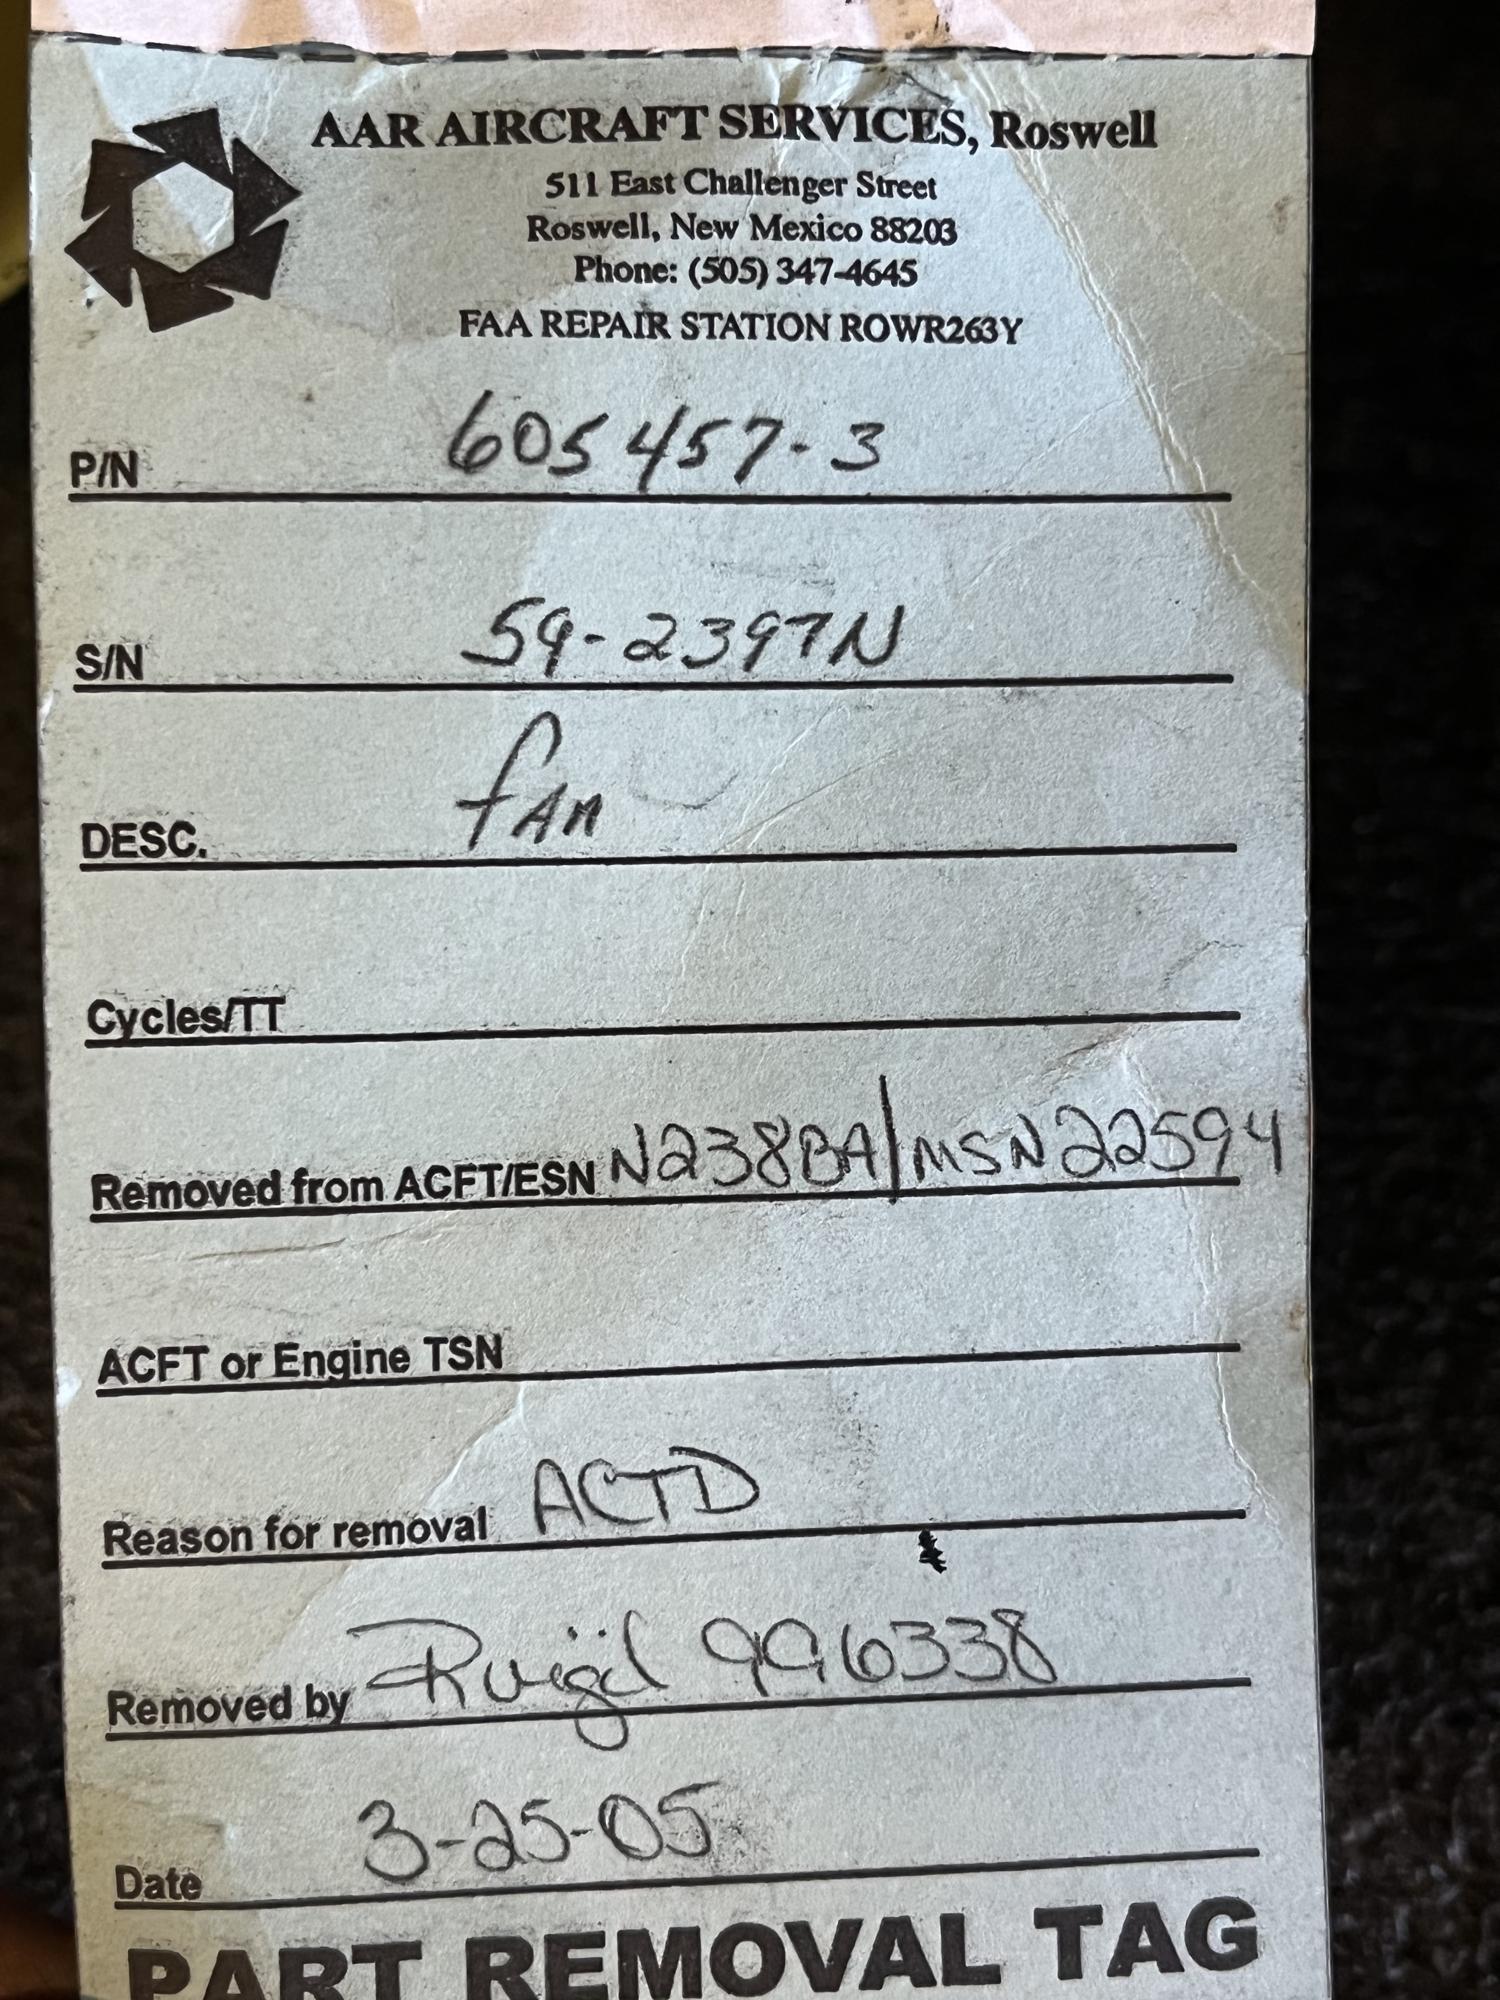 AAR AIRCRAFT SERVICES, Roswell
511 East Challenger Street
Roswell, New Mexico 88203
Phone: (505) 347-4645
FAA REPAIR STATION ROWR263Y
P/N 605457-3
S/N 59-2397N
DESC. fAn
Cycles/TT
Removed from ACFT/ESN N238BA/MSN22594
ACFT or Engine TSN
Reason for removal ACTD
Removed by 996338
Date 3-25-05
PART REMOVAL TAG